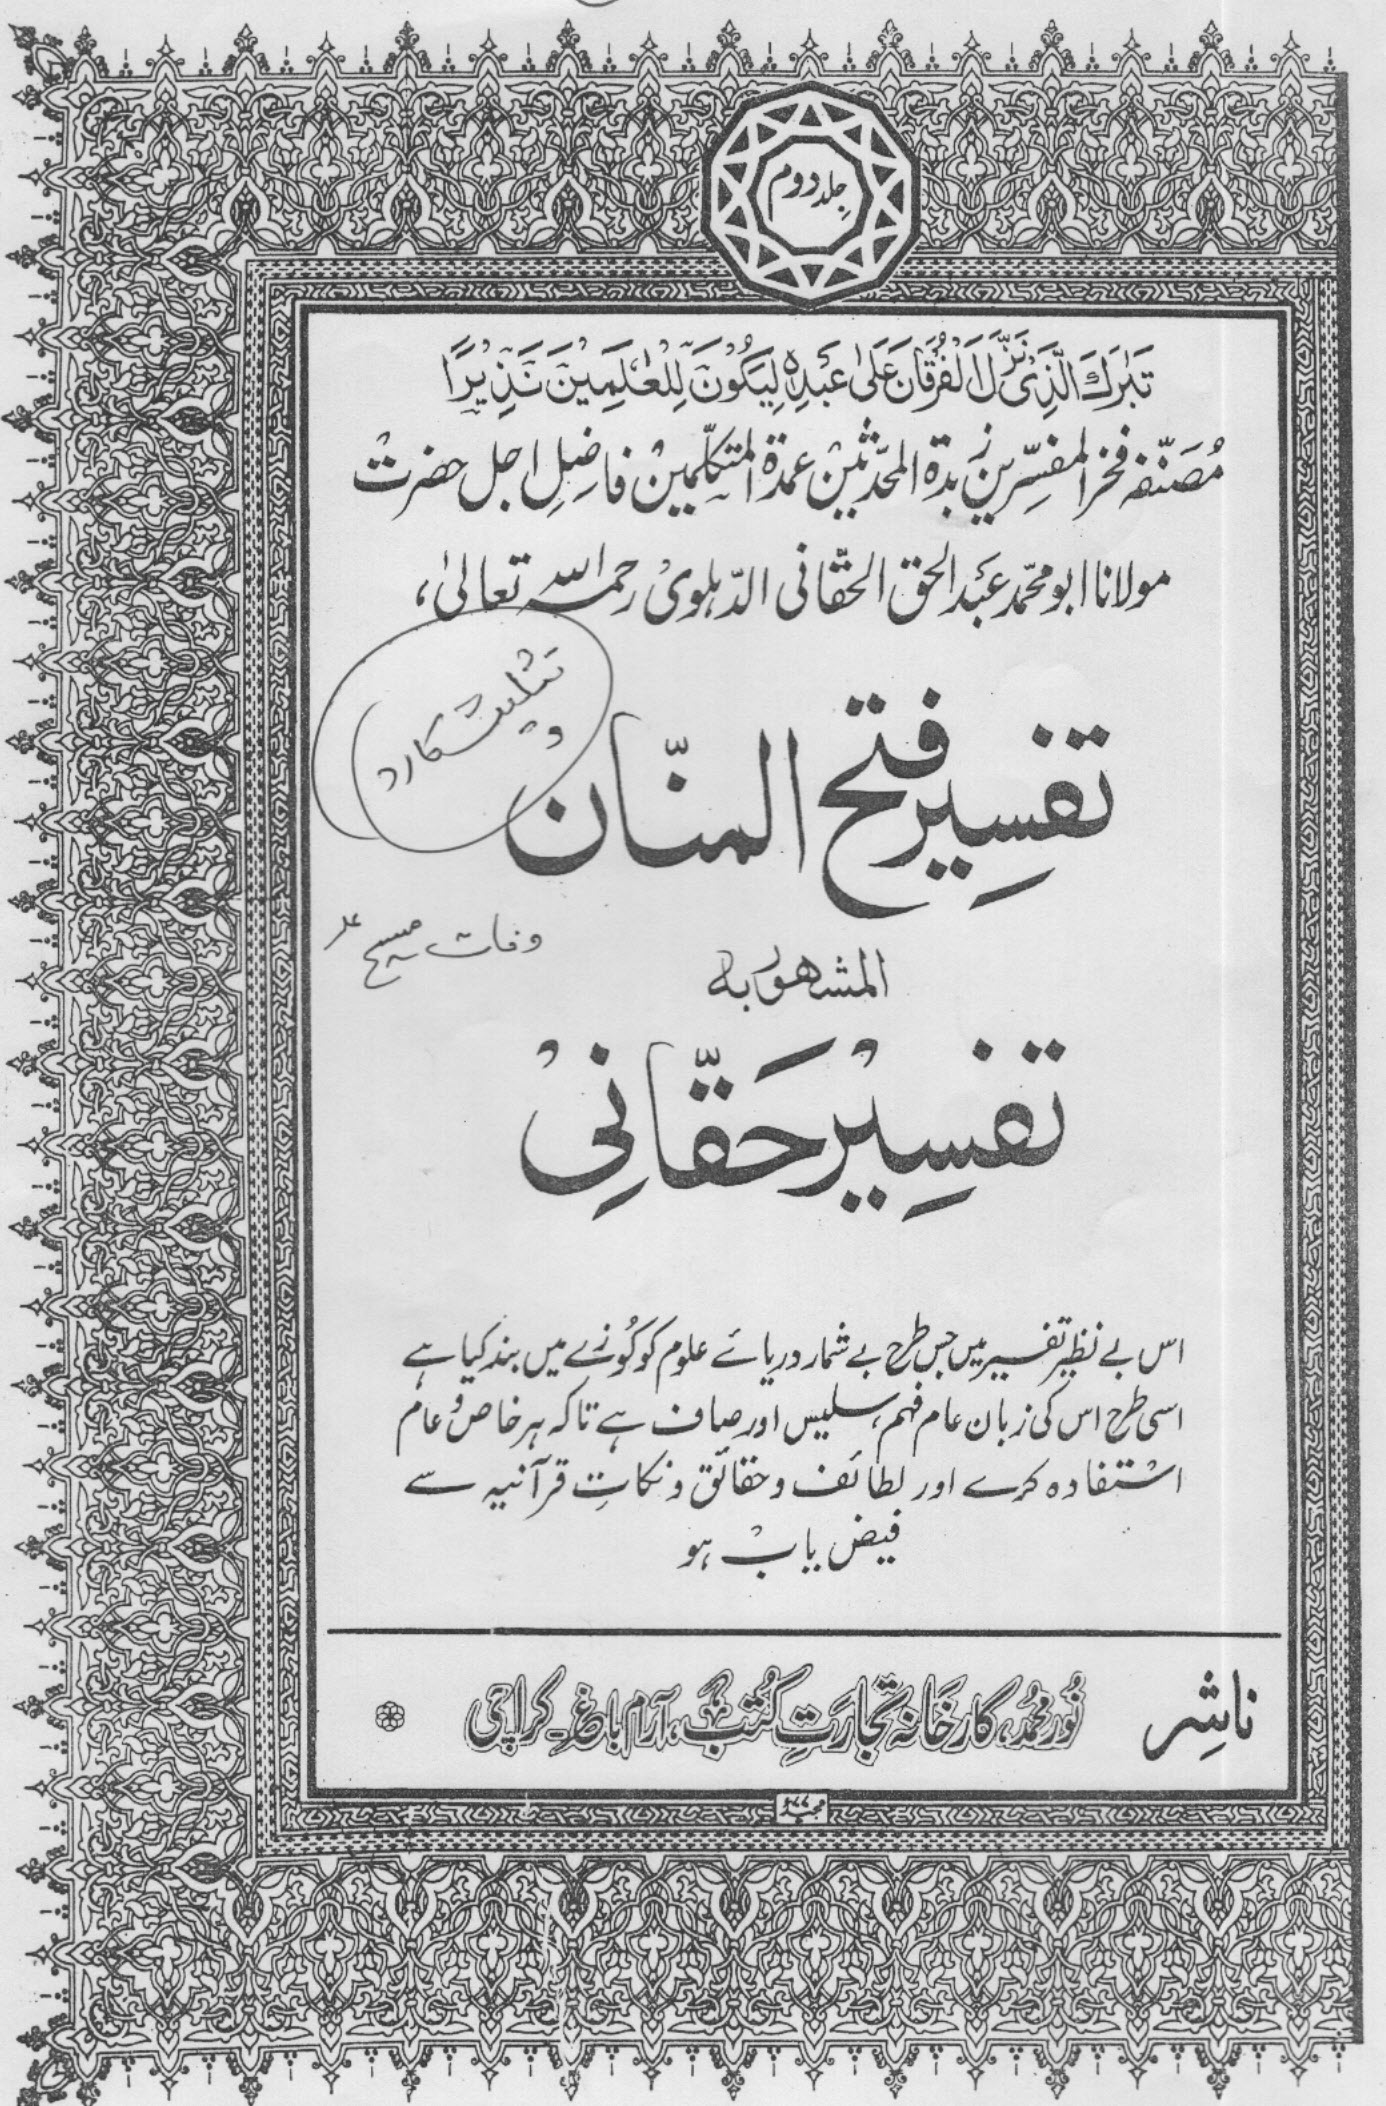 جلد دوم
تَبٰرَكَ الَّذِیْ نَزَّلَ الْفُرْقَانَ عَلٰی عَبْدِهٖ لِیَكُوْنَ لِلْعٰلَمِیْنَ نَذِیْرًا
مُصَنّفہ فخر المفسّرین زبدة المحدّثین عمدة المتکلّمین فاضِلِ اجل حضرت
مولانا ابو محمّد عبد الحق الحقّانی الدّہلویْ رحمہ اللہ تعالیٰ،
تفسِیر فتح المنّان
تثلیث کا رد
وفات مسیح
المشہور بہ
تفسِیْر حَقّانِیْ
اس بے نظیر تفسیر میں جس طرح بے شمار دریائے علوم کو کُوزے میں بند کیا ہے
اسی طرح اس کی زبان عام فہم، سلیس اور صاف ہے تاکہ ہر خاص و عام
استفادہ کرے اور لطائف و حقائق و نکاتِ قرآنیہ سے
فیض یاب ہو
ناشِر نُور محمّد، کارخَانہ تجارَتِ کُتب، آرام باغ۔ کراچی